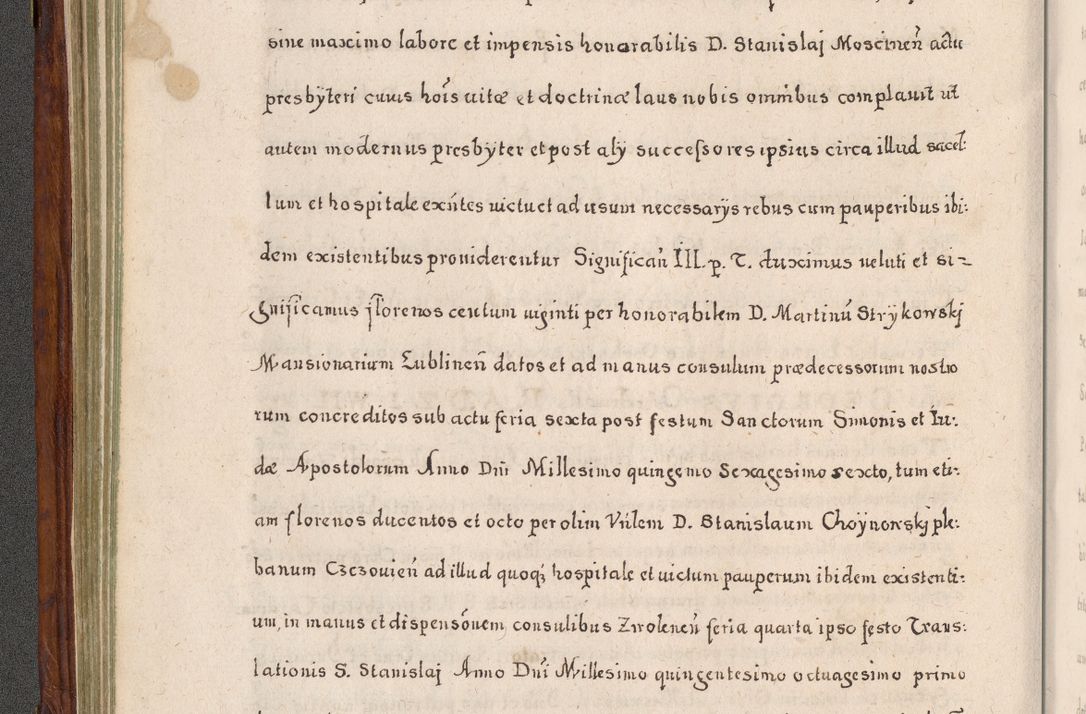 sine maximo labore et impensis honorabilis D. Stanislaj Moscineń actu
presbÿteri cuius hoĩs uitæ et doctrinæ laus nobis omnibus complauit ut
autem modernus presbyter et post aly successores ipsius circa illud sacel:
lum et hospitale exñtes uictu et ad usum necessarÿs rebus cum pauperibus ibi:
dem existentibus prouiderentur Significañ Ill. p. T. duximus ueluti et si-
gnificamus florenos centum uiginti per honorabilem D. Martinũ Strÿkowskj
Mansionarium Lublineñ datos et ad manus consulum prædecessorum nostro
rum concreditos sub actu feria sexta post festum Sanctorum Simonis et Iu:
dæ Apostolorum Anno Dni Millesimo quingemo Sexagesimo sexto, tum eti:
am florenos ducentos et octo per olim Vñlem D. Stanislaum Choÿnowskj ple:
banum Czczouień ad illud quoqʒ hospitale et uictum pauperum ibidem existenti:
um, in manus et dispensõuem consulibus Zwoleneñ feria quarta ipso festo Trans:
lationis S. Stanislaj Anno Dñi Millesimo quingentesimo octuagesimo primo